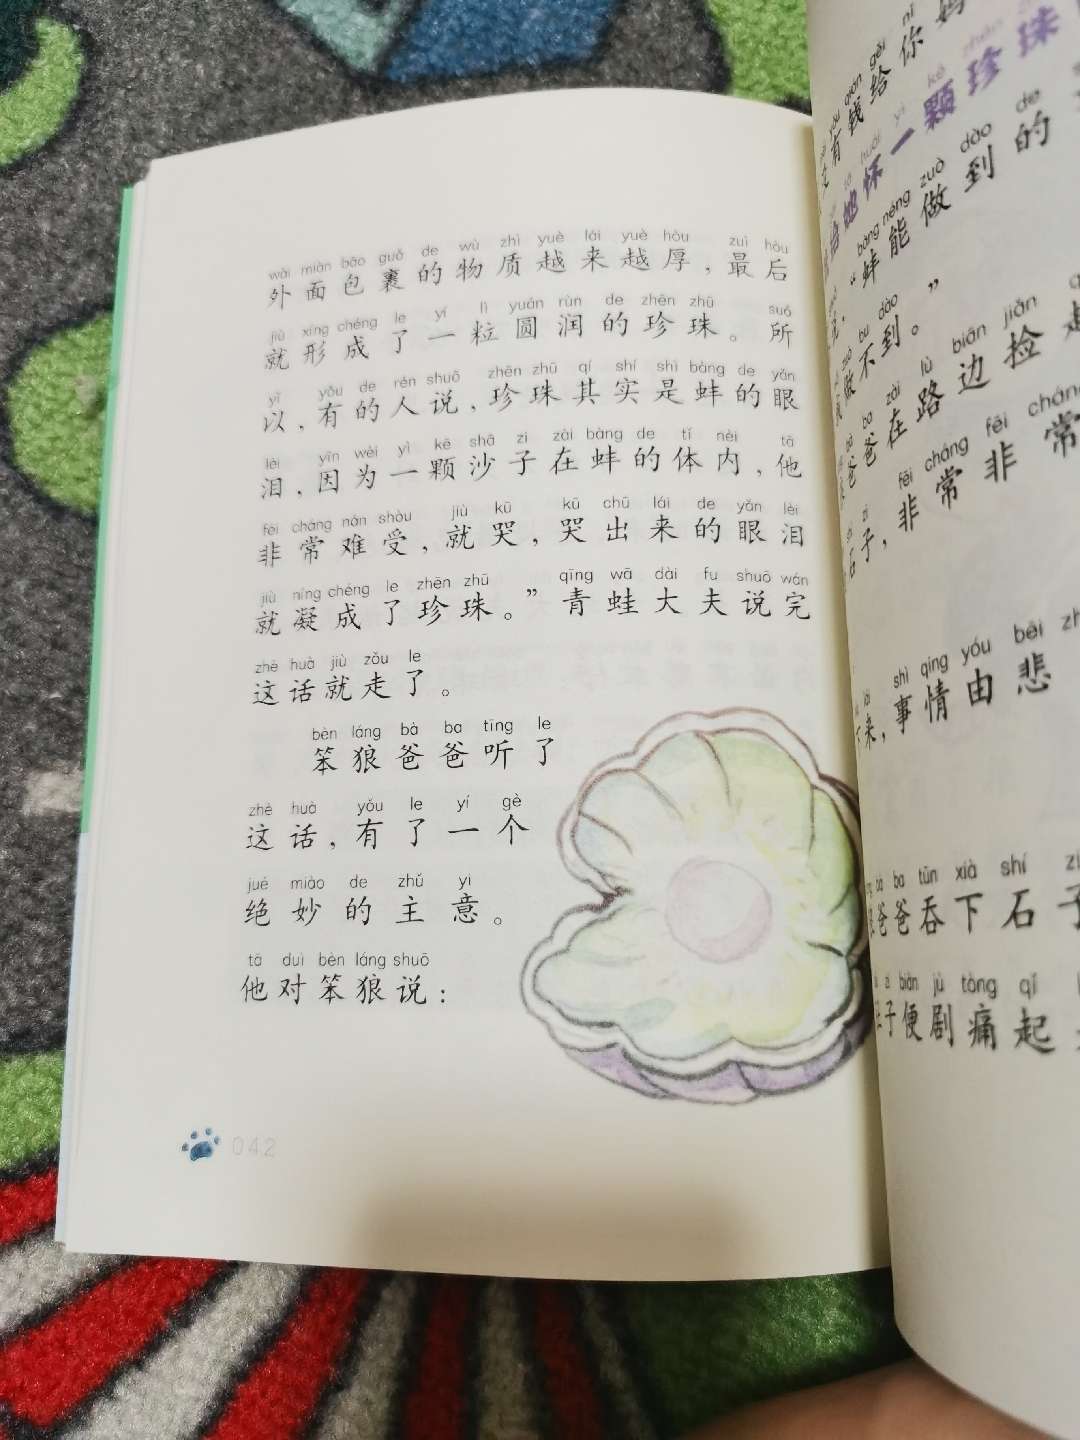 wài miàn bāo guǒ de wù zhì yuè lái yuè hòu zuì hòu
外面包裹的物质越来越厚，最后
jiù xíng chéng le yí lì yuán rùn de zhēn zhū suǒ
就形成了一粒圆润的珍珠。所
yǐ yǒu de rén shuō zhēn zhū qí shí shì bàng de yǎn
以，有的人说，珍珠其实是蚌的眼
lèi yīn wèi yì kē shā zi zài bàng de tǐ nèi tā
泪，因为一颗沙子在蚌的体内，他
fēi cháng nán shòu jiù kū kū chū lái de yǎn lèi
非常难受，就哭，哭出来的眼泪
jiù níng chéng le zhēn zhū qīng wā dài fu shuō wán
就凝成了珍珠。”青蛙大夫说完
zhè huà jiù zǒu le
这话就走了。
bèn láng bà ba tīng le
笨狼爸爸听了
zhè huà yǒu le yí gè
这话，有了一个
jué miào de zhǔ yi
绝妙的主意。
tā duì bèn láng shuō
他对笨狼说：
042
yǒu qián gěi nǐ
有钱给你妈
huái yì kē zhēn
她怀一颗珍珠
bàng néng zuò dào de
“蚌能做到的
zuò bu dào
做不到。”
bà ba zài lù biān jiǎn
爸爸在路边捡
zi fēi cháng fēi cháng
石子，非常非常
lái shì qing yóu bēi
下来，事情由悲
bà ba tūn xià shí
爸爸吞下石子
biàn jù tòng qǐ
子便剧痛起